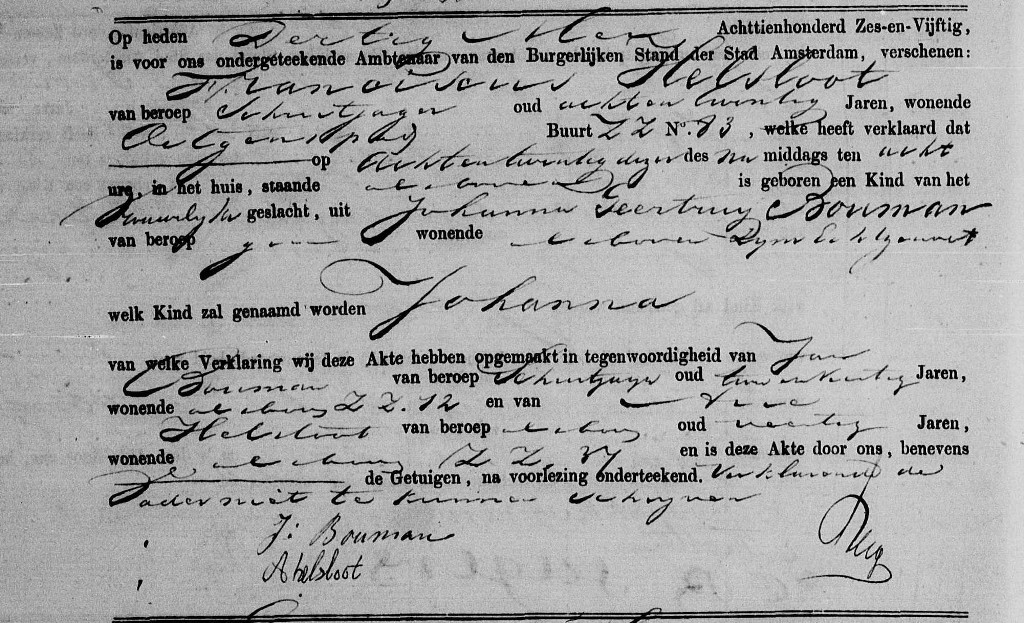 Op heden Dertig Mei Achttienhonderd Zes-en-Vijftig,
is voor ons ondergeteekende Ambtenaar van den Burgerlijken Stand der Stad Amsterdam, verschenen:
Franciscus Helsloot
van beroep Schuitjager oud achtentwintig Jaren, wonende
Oetgenspad Buurt ZZ No. 83, welke heeft verklaard dat
op Achtentwintig dezer des na middags ten acht
ure, in het huis, staande als boven is geboren een Kind van het
Vrouwelijk geslacht, uit Johanna Geertruy Bouman
van beroep geen wonende als boven Zyne Echtgenoot
welk Kind zal genaamd worden Johanna
van welke Verklaring wij deze Akte hebben opgemaakt in tegenwoordigheid van Jan
Bouman van beroep Schuitjager oud Jaren,
wonende als boven ZZ. 12 en van
Helsloot van beroep als boven oud veertig Jaren,
wonende als boven ZZ. en is deze Akte door ons, benevens
de Getuigen, na voorlezing onderteekend. Verklarende de
Vader niet te kunnen schryven
J: Bouman
A helsloot